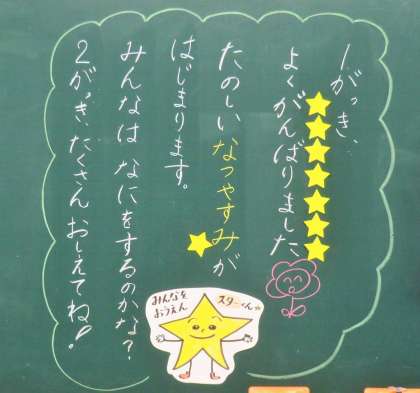 1がっき、
よくがんばりました
たのしいなつやすみが
はじまります。
みんなは なにをするのかな?
2がっき、たくさん おしえてね!
みんなを
おうえん
スターくん